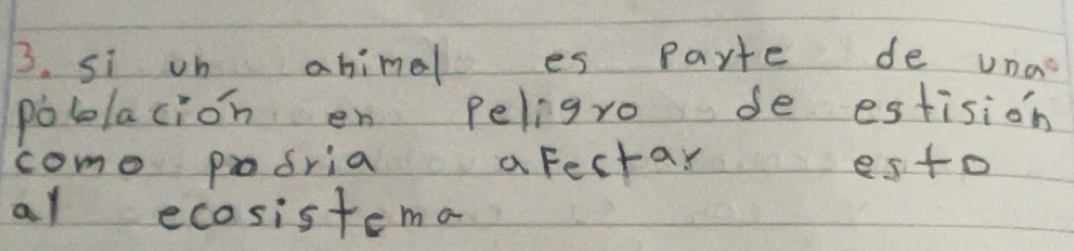 3. si un animal es parte de una
población en peligro de estisión
como podria afectar esto
al ecosistema